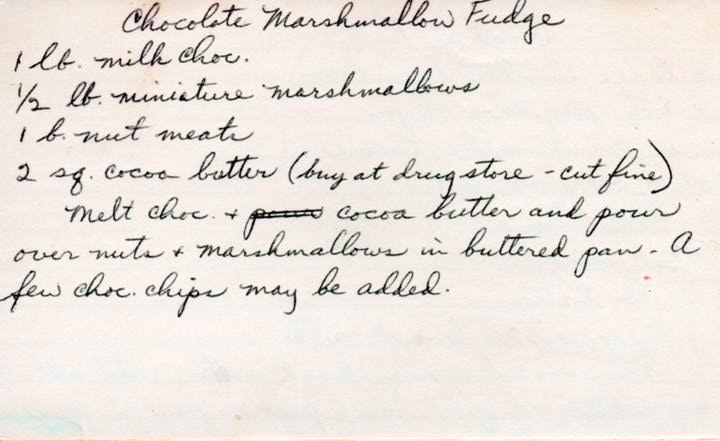 Chocolate Marshmallow Fudge
1 lb. milk choc.
1/2 lb. miniature marshmallows
1 b. nut meats
2 sq. cocoa butter (buy at drugstore - cut fine)
Melt choc. + cocoa butter and pour
over nuts + marshmallows in buttered pan - A
few choc. chips may be added.